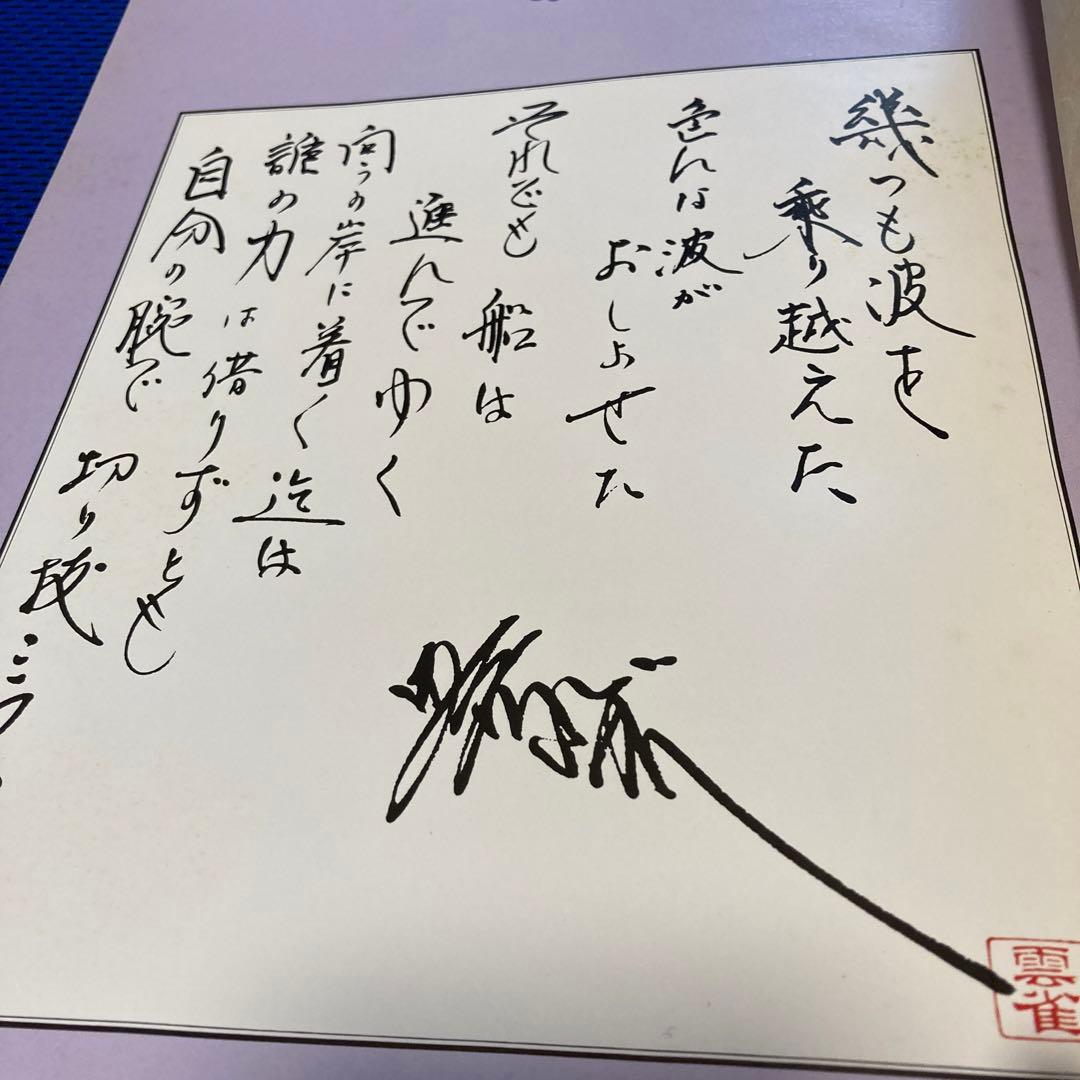 幾つも波を
乗り越えた
色んな波が
おしよせた
それでも 船は
進んでゆく
向うの岸に着く迄は
誰の力は借りずとも
自分の腕で 切り抜
雲雀